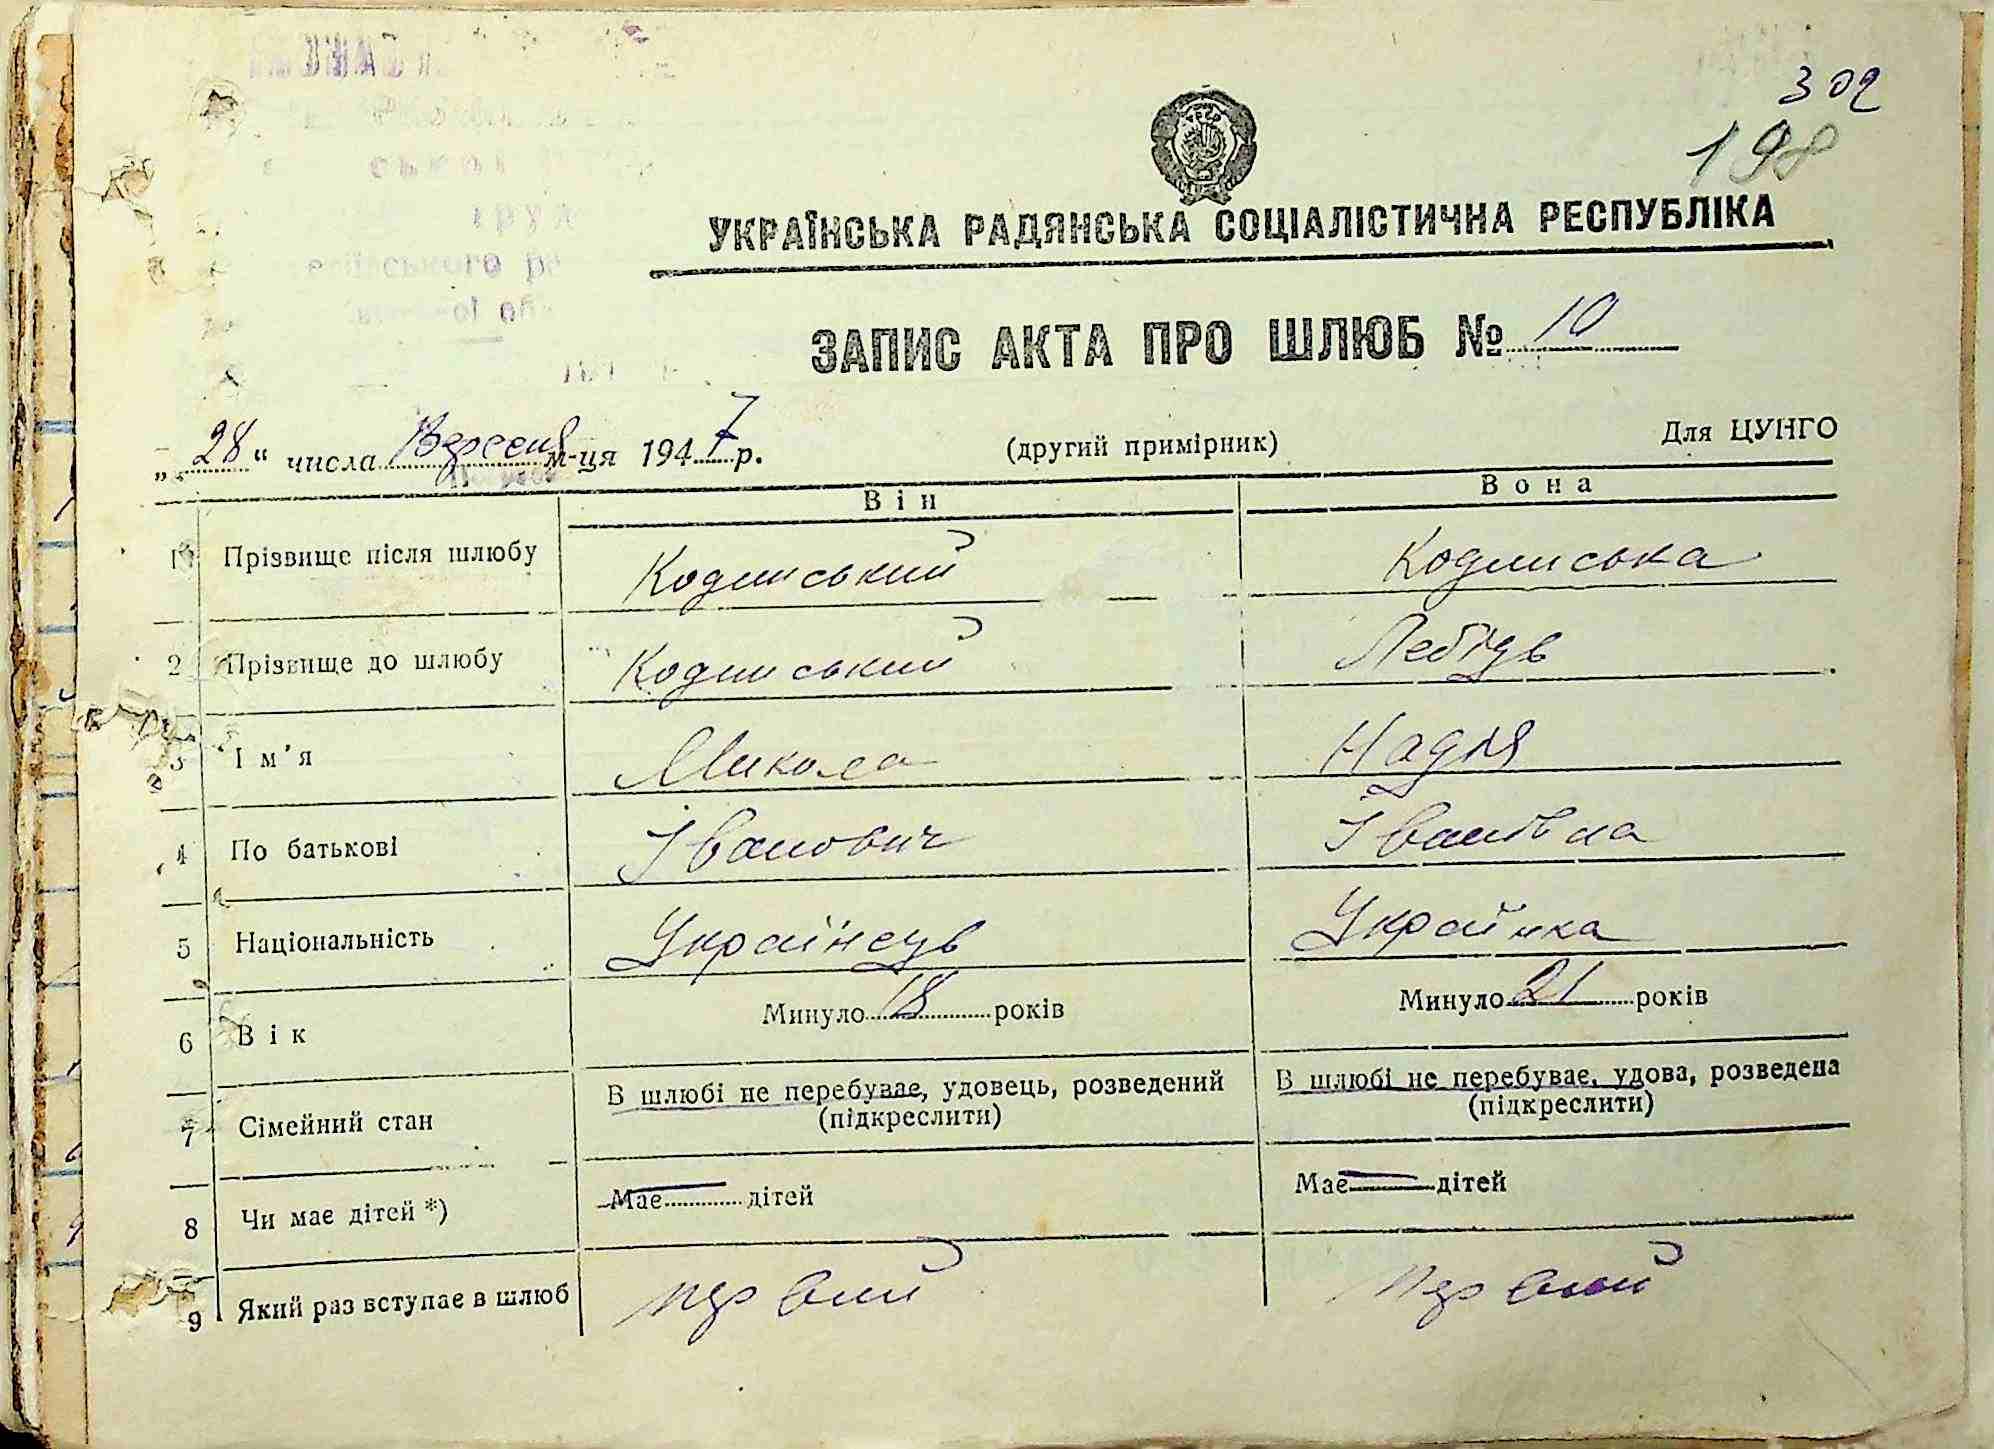 302
198
УКРАЇНСЬКА РАДЯНСЬКА СОЦІАЛІСТИЧНА РЕСПУБЛІКА
ЗАПИС АКТА ПРО ШЛЮБ № 10
„28“ числа Вересня м-ця 1947 р. (другий примірник) Для ЦУНГО
Він Вона
1 Прізвище після шлюбу Кодимський Кодимська
2 Прізвище до шлюбу Кодимський Лебідь
3 Ім'я Микола Надія
4 По батькові Іванович Іванівна
5 Національність Українець Українка
6 Вік Минуло 18 років Минуло 21 років
7 Сімейний стан В шлюбі не перебуває, удовець, розведений (підкреслити) В шлюбі не перебуває, удова, розведена (підкреслити)
8 Чи має дітей *) Має — дітей Має — дітей
9 Який раз вступає в шлюб первий первий